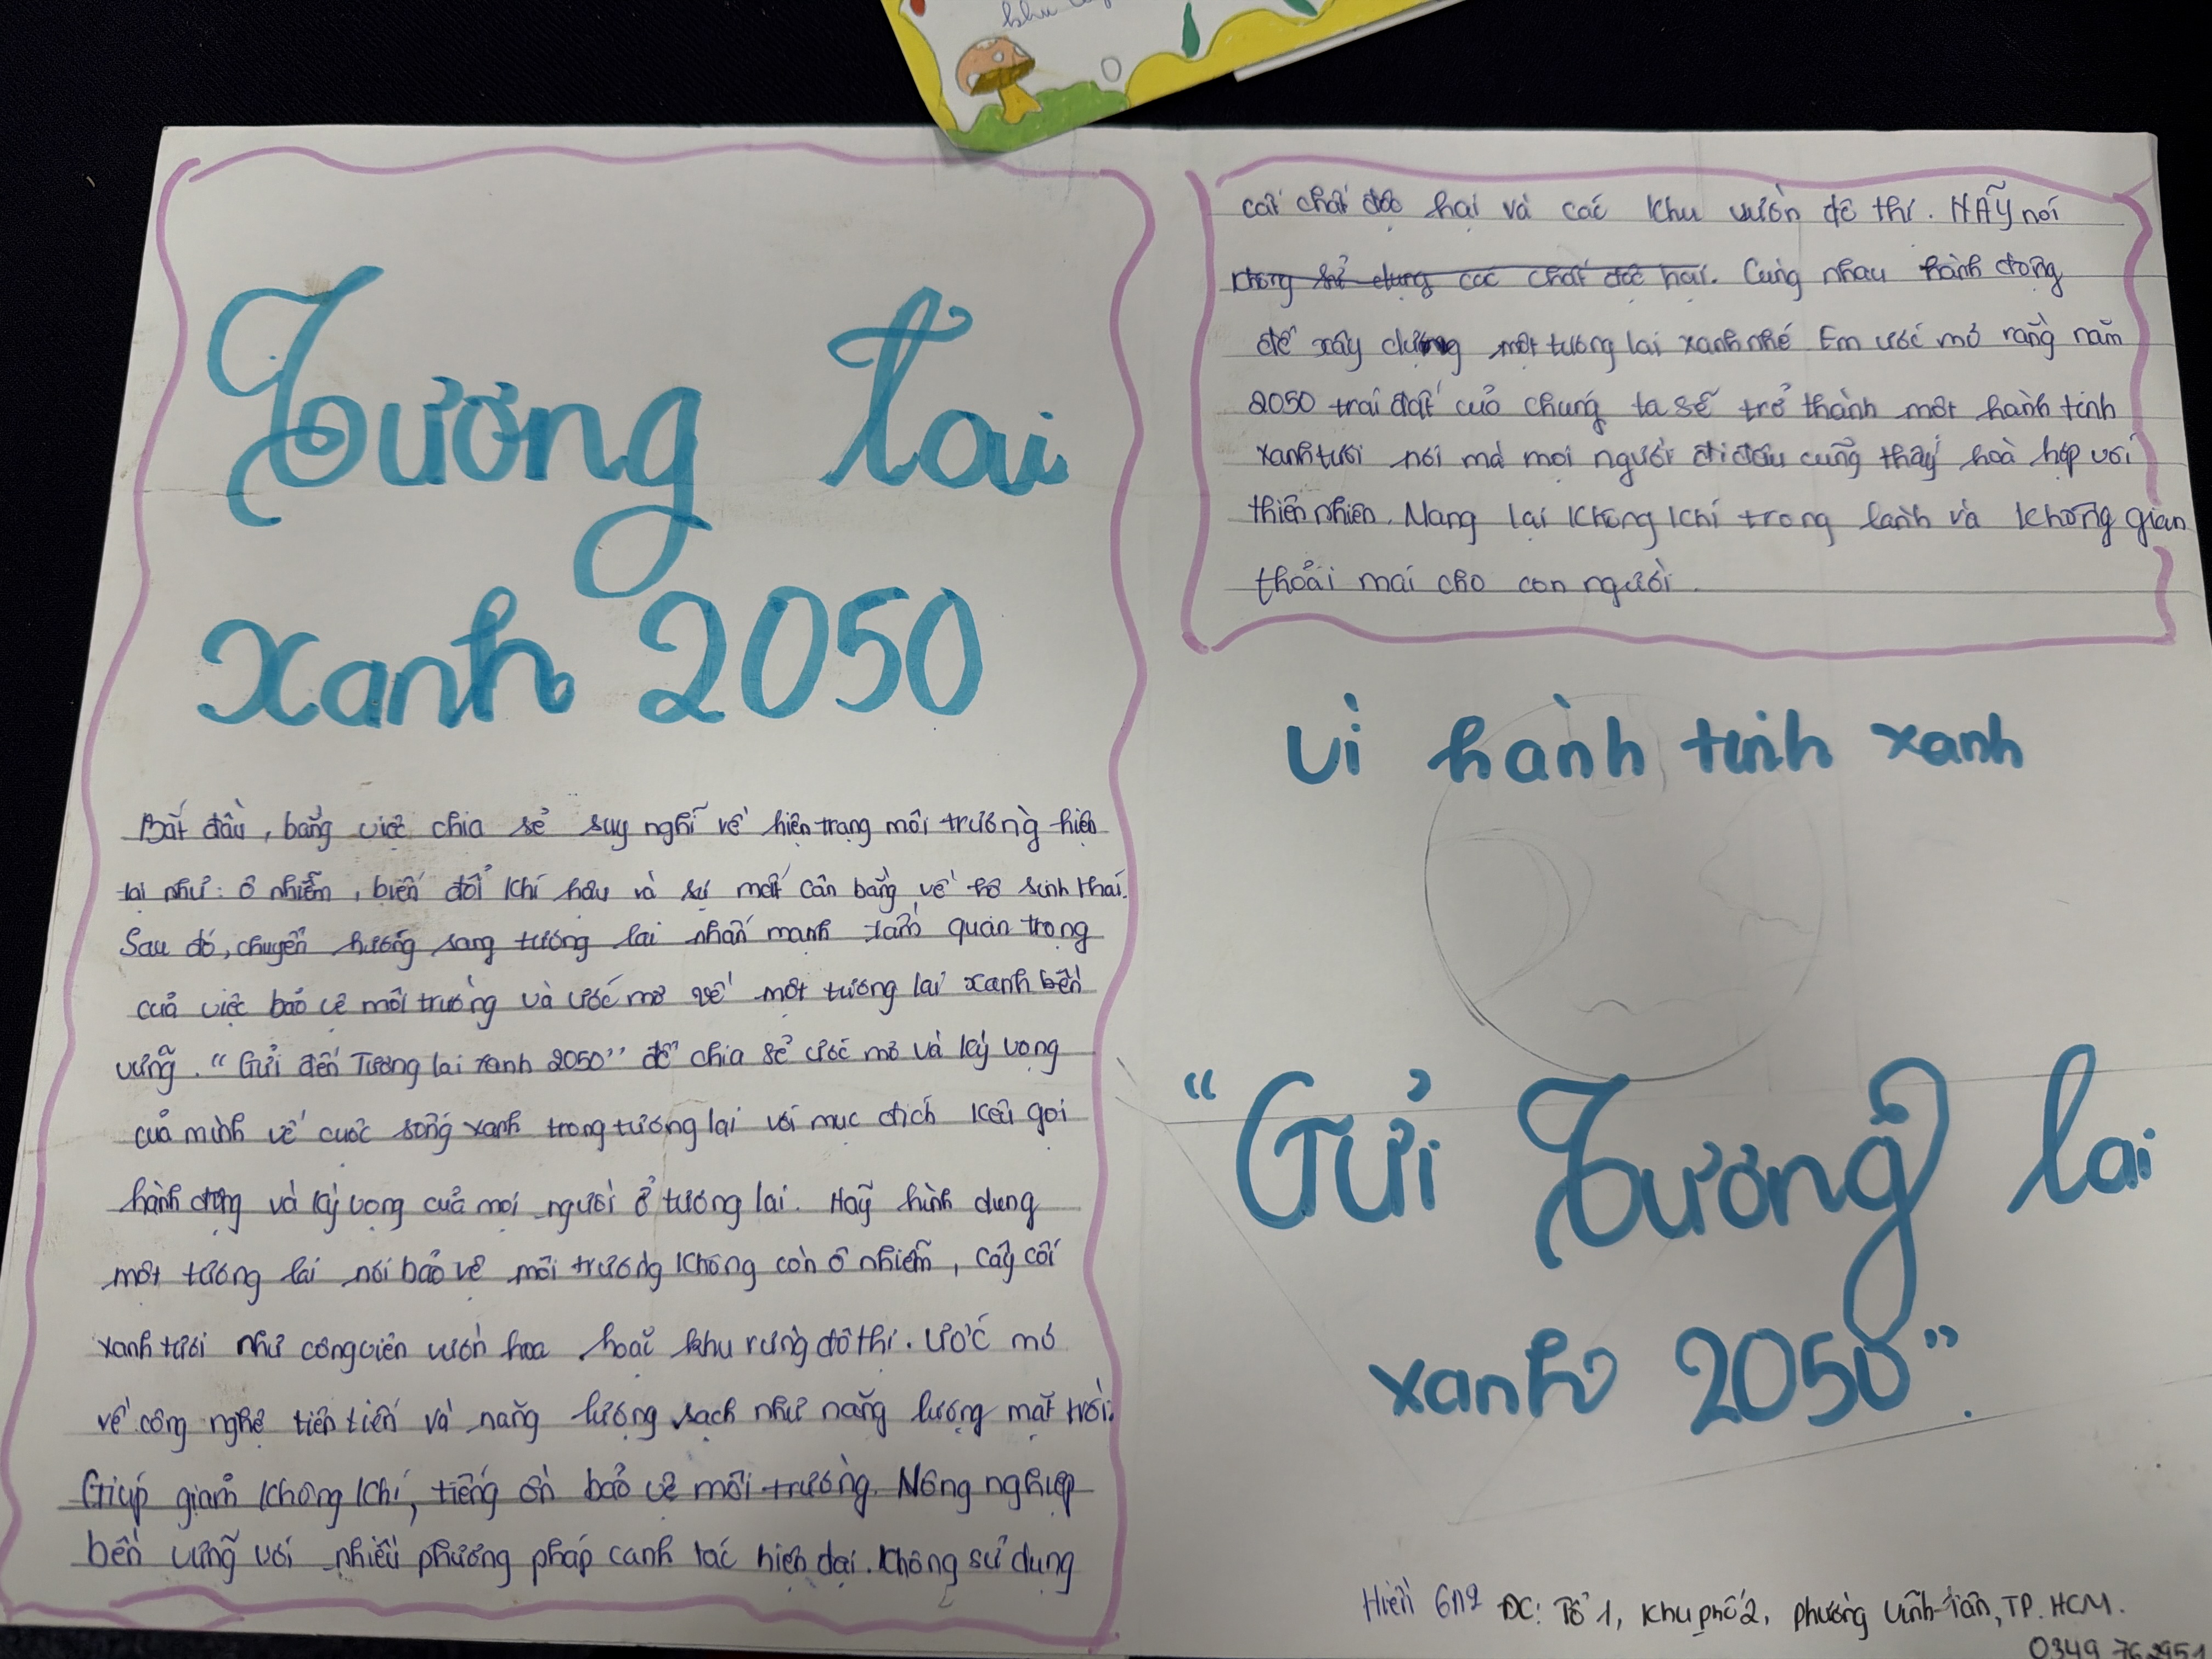 khu
Tương lai
Xanh 2050
Bắt đầu, bằng việc chia sẻ suy nghĩ về hiện trạng môi trường hiện
tại như: ô nhiễm, biến đổi khí hậu và sự mất cân bằng về hệ sinh thái.
Sau đó, chuyển hướng sang tương lai nhấn mạnh tầm quan trọng
của việc bảo vệ môi trường và ước mơ về một tương lai xanh bền
vững. "Gửi đến Tương lai xanh 2050" để chia sẻ ước mơ và kỳ vọng
của mình về cuộc sống xanh trong tương lai với mục đích kêu gọi
hành động và kỳ vọng của mọi người ở tương lai. Hãy hình dung
một tương lai nơi bảo vệ môi trường không còn ô nhiễm, cây cối
xanh tươi như công viên vườn hoa hoặc khu rừng đô thị. Ước mơ
về công nghệ tiên tiến và năng lượng sạch như năng lượng mặt trời.
Giúp giảm không khí, tiếng ồn bảo vệ môi trường. Nông nghiệp
bền vững với nhiều phương pháp canh tác hiện đại. Không sử dụng
các chất độc hại và các khu vườn đô thị. HÃY nói
không sử dụng các chất độc hại. Cùng nhau hành động
để xây dựng một tương lai xanh nhé Em ước mơ rằng năm
2050 trái đất của chúng ta sẽ trở thành một hành tinh
xanh tươi nơi mà mọi người đi đâu cũng thấy hoà hợp với
thiên nhiên. Mang lại không khí trong lành và không gian
thoải mái cho con người.
Vì hành tinh xanh
"Gửi Tương lai
xanh 2050".
Hiền 6A2 ĐC: Tổ 1, Khu phố 2, phường Vĩnh Tân, TP. HCM.
0349 762951